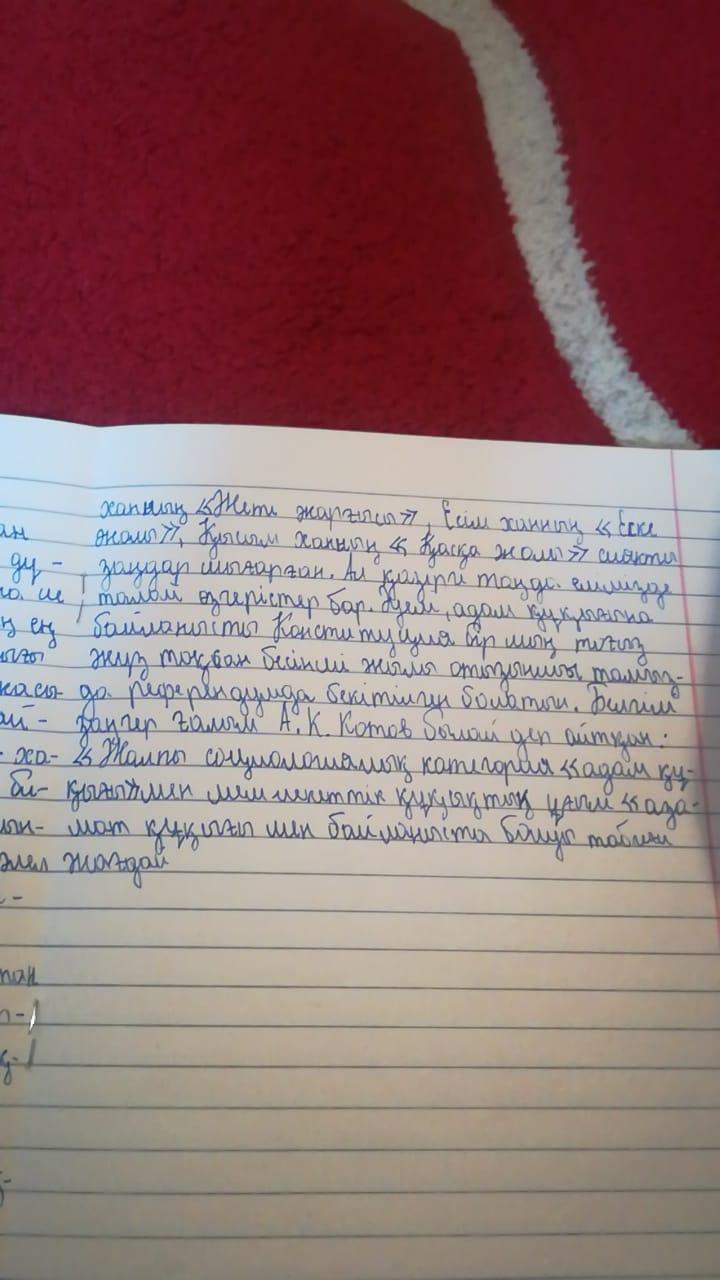 ханның «Жеті жарғысы», Есім ханның «Ескі
жолы», Қасым ханның «Қасқа жолы» сияқты
заңдар шығарған. Ал қазіргі таңда елімізде
талай өзгерістер бар. Әрі, адам құқығына
байланысты Конституция бір мың тоғыз
жүз тоқсан бесінші жылы отызыншы тамыз-
да референдумда бекітілген болатын. Белгілі
заңгер ғалым А.К. Котов былай деп айтқан:
«Жалпы социологиялық категория «адам құ-
қығы» мен мемлекеттік құқықтың ұғым «аза-
мат құқығы мен байланыста болуы табиғи
жағдай
ан
ду-
ң ең
ығы
қасы-
ай-
ха-
би-
ын-